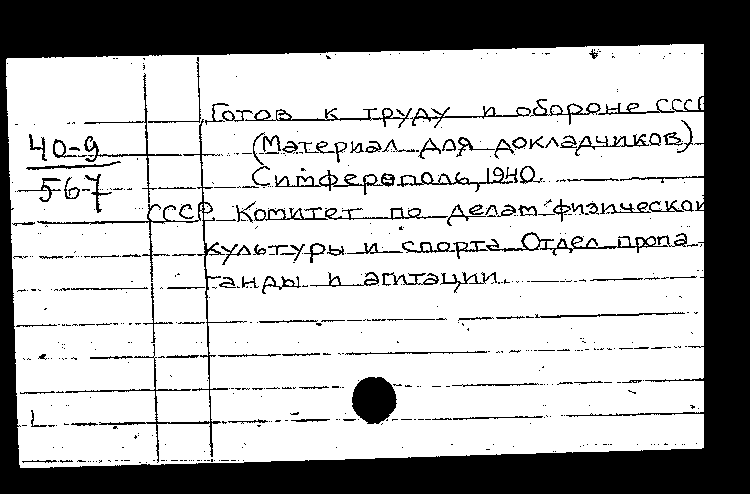 Готов к труду и обороне СССР
40-9
(Материал для докладчиков)
567
Симферополь, 1940.
СССР. Комитет по делам физической
культуры и спорта. Отдел пропа-
ганды и агитации.